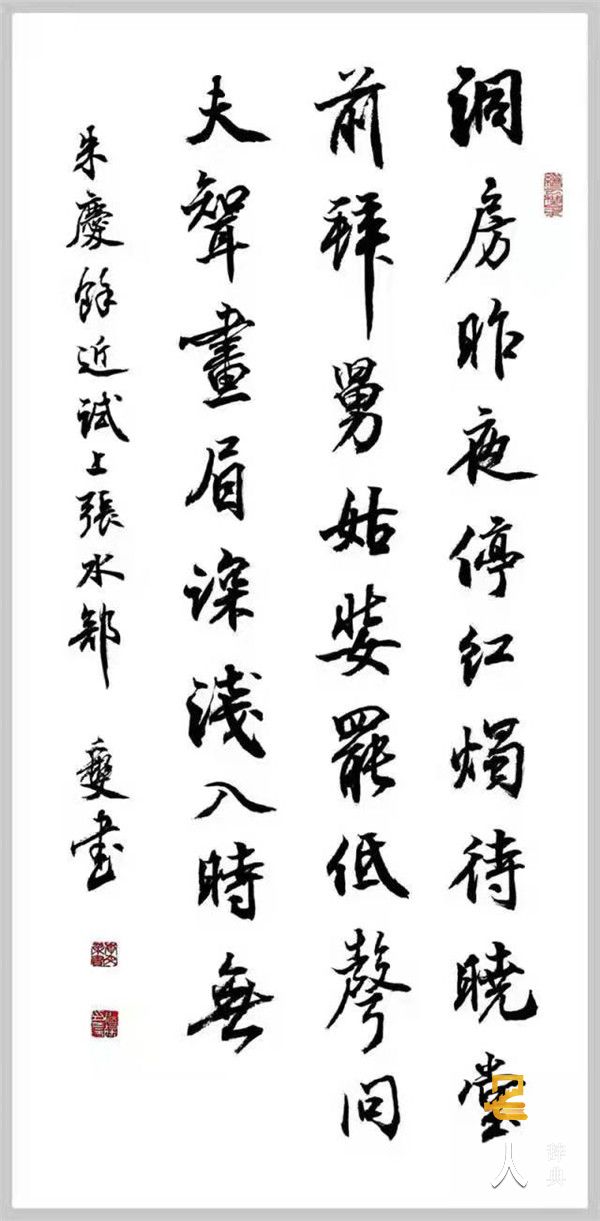 洞房昨夜停红燭待曉堂
前拜舅姑妝罷低聲問
夫聟畫眉深淺入時無
朱慶餘近試上張水部 燮書
人
辞典